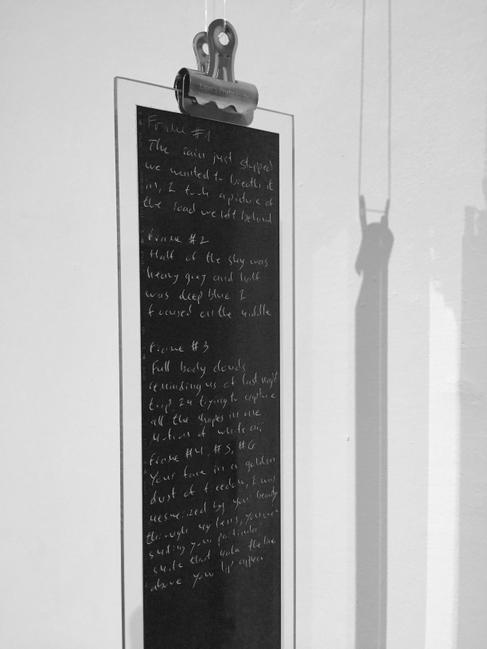 Frame #1
The rain just stopped
we wanted to breath it
in, I took a picture of
the road we left behind
Frame #2
Half of the sky was
heavy grey and half
was deep blue I
focused on the middle
Frame #3
Full body clouds
reminding us of last
trip I'm trying to capture
all the shapes in one
of white air
Frame #4, #5, #6
Your face in a golden
dust of freedom, I was
mesmerized by your beauty
through my lens, you were
your particular
smile that made the line
above your lip appear